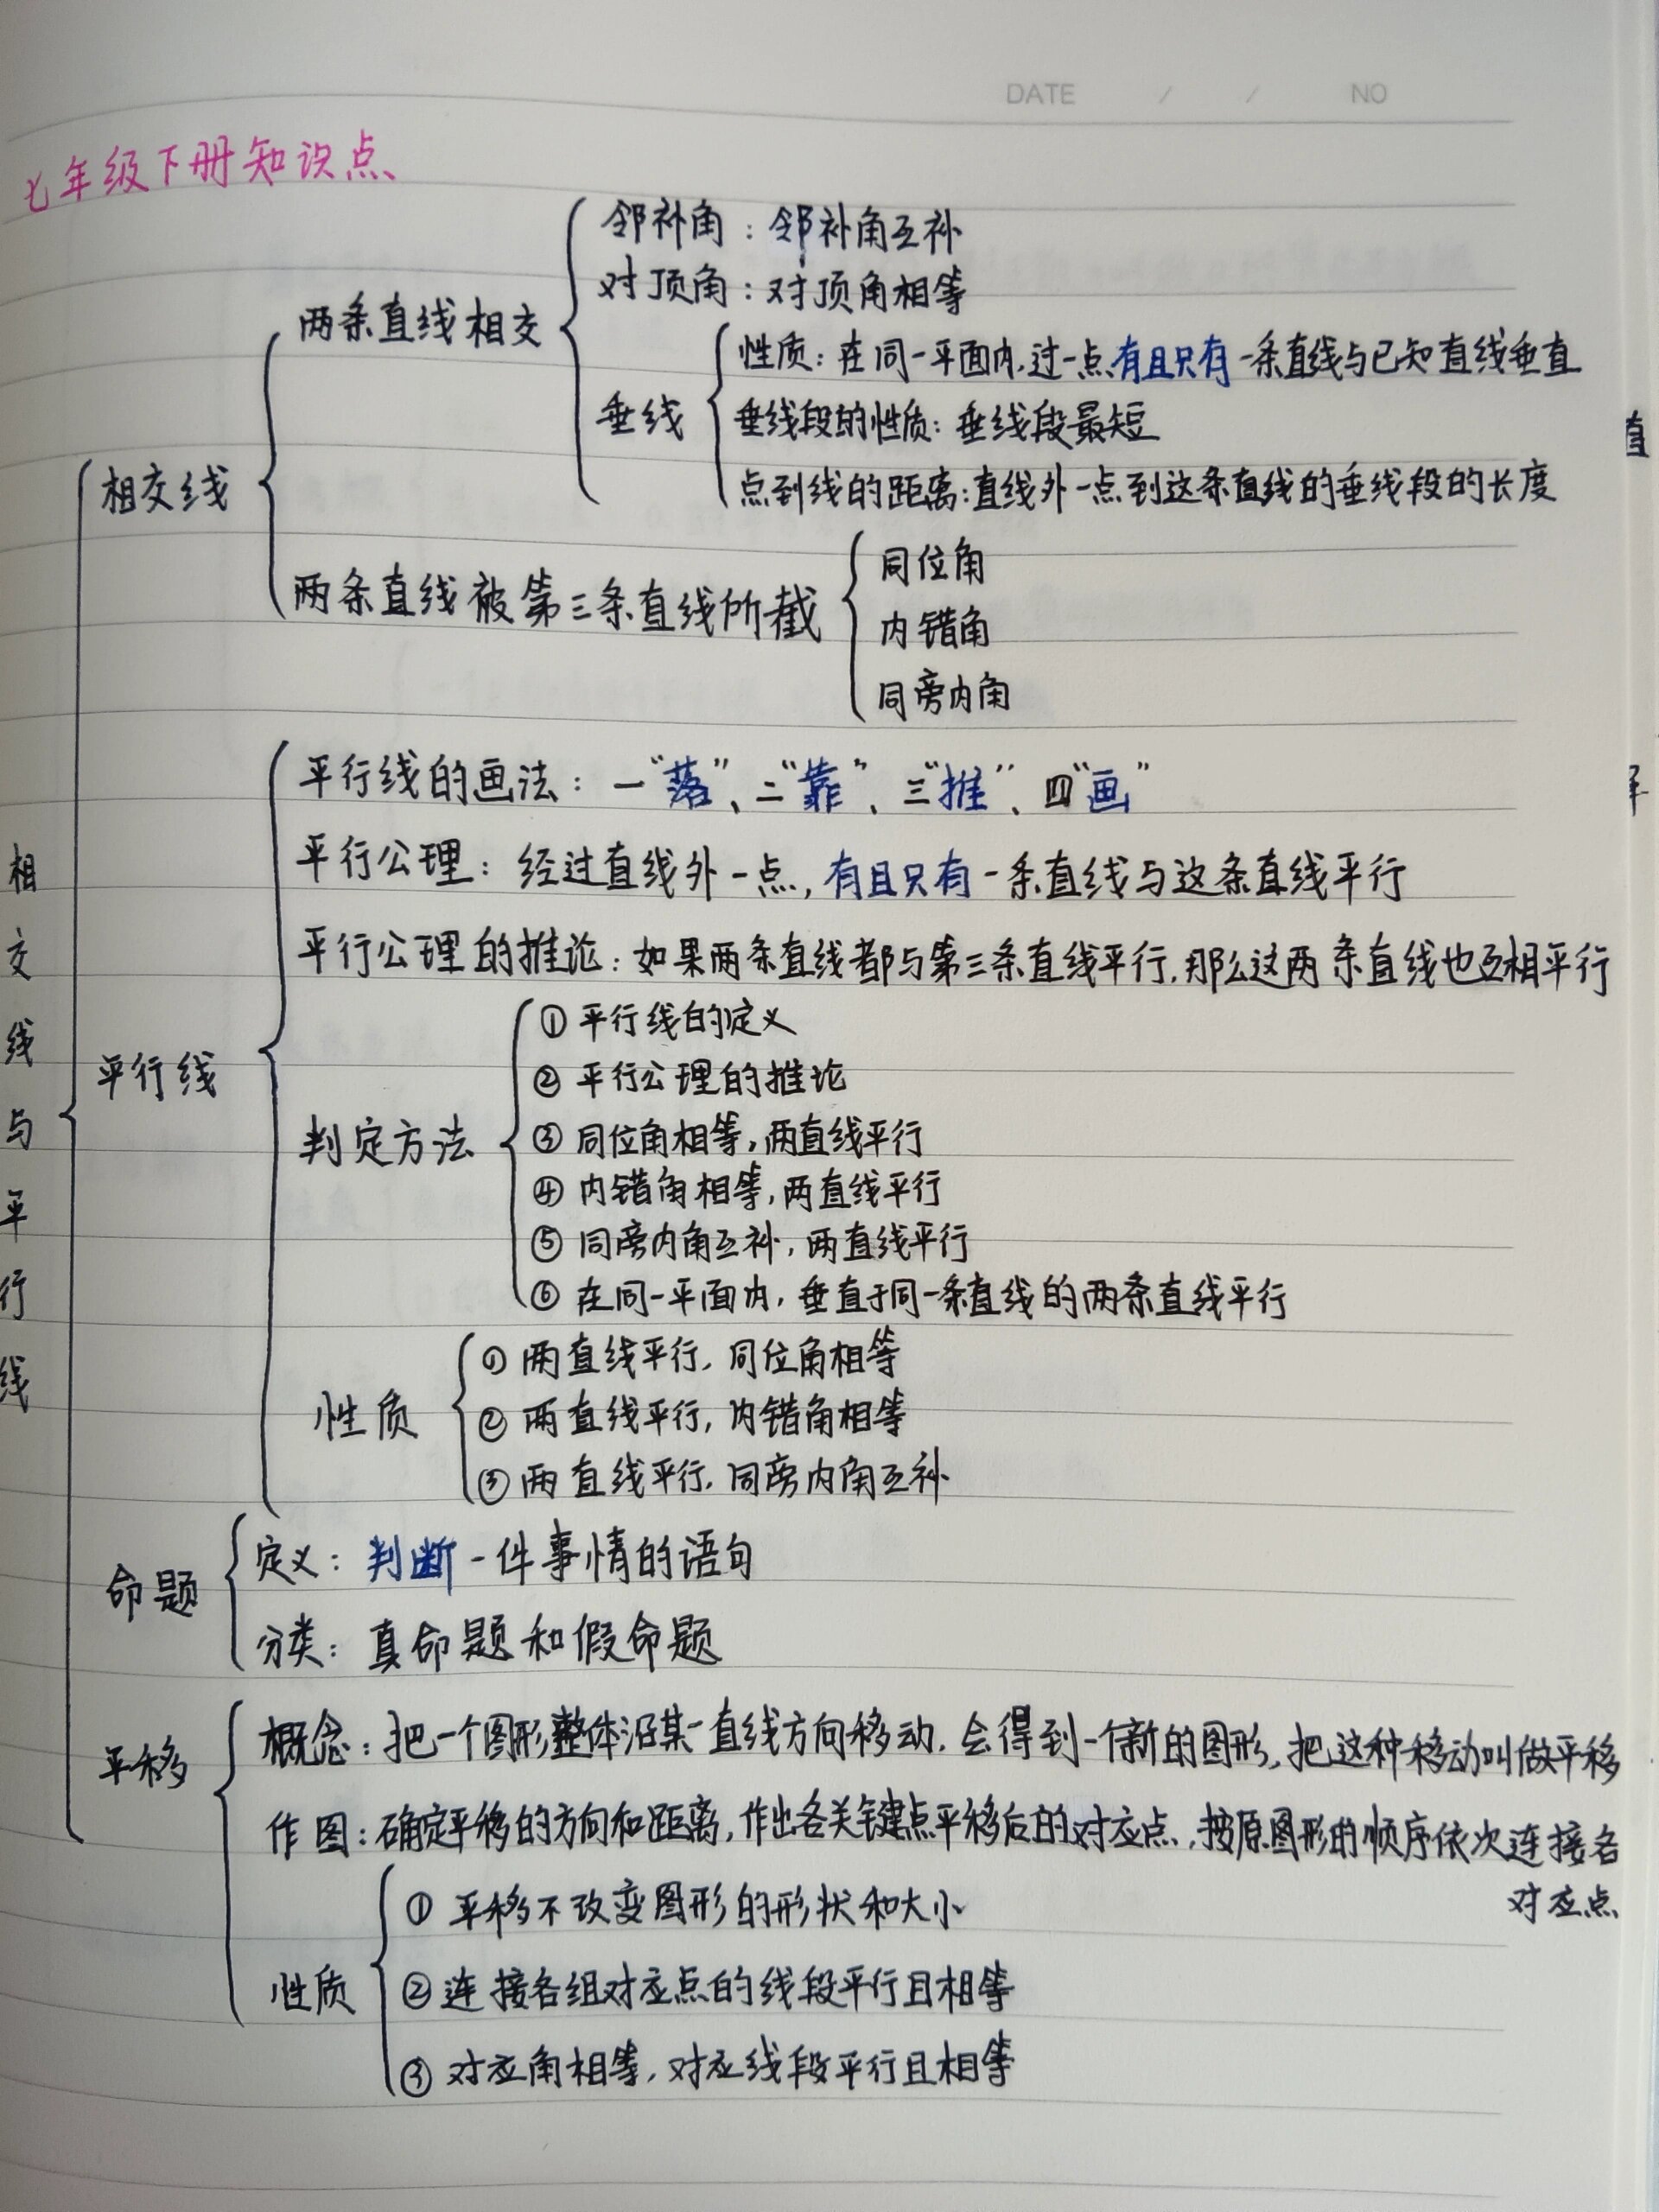 DATE / / NO
七年级下册知识点
邻补角：邻补角互补
对顶角：对顶角相等
两条直线相交
性质：在同一平面内,过一点有且只有一条直线与已知直线垂直
垂线
垂线段的性质：垂线段最短
点到线的距离：直线外一点到这条直线的垂线段的长度
相交线
两条直线被第三条直线所截
同位角
内错角
同旁内角
平行线的画法：一“落”、二“靠”、三“推”、四“画”
平行公理：经过直线外一点,有且只有一条直线与这条直线平行
平行公理的推论：如果两条直线都与第三条直线平行,那么这两条直线也互相平行
相交线与平行线
平行线
判定方法
① 平行线的定义
② 平行公理的推论
③ 同位角相等,两直线平行
④ 内错角相等,两直线平行
⑤ 同旁内角互补,两直线平行
⑥ 在同一平面内,垂直于同一条直线的两条直线平行
性质
① 两直线平行,同位角相等
② 两直线平行,内错角相等
③ 两直线平行,同旁内角互补
命题
定义：判断一件事情的语句
分类：真命题和假命题
平移
概念：把一个图形整体沿某一直线方向移动,会得到一个新的图形,把这种移动叫做平移
作图：确定平移的方向和距离,作出各关键点平移后的对应点,按原图形的顺序依次连接各
对应点
性质
① 平移不改变图形的形状和大小
② 连接各组对应点的线段平行且相等
③ 对应角相等,对应线段平行且相等